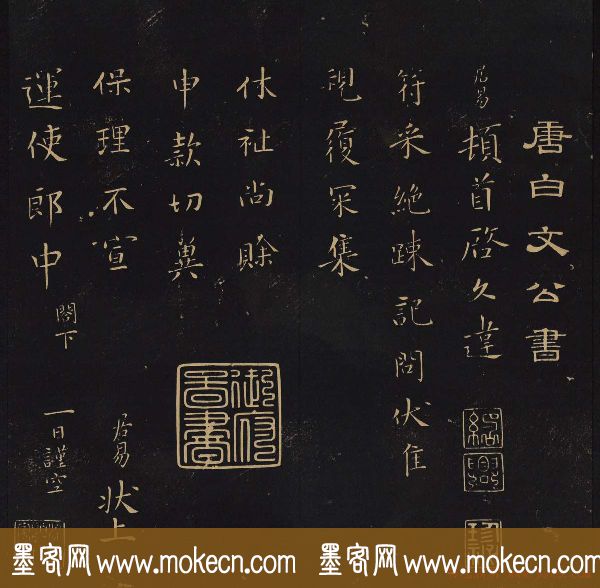 唐白文公書
居易頓首啓久違
符采絶踈記問伏惟
視履冞集
休祉尚賒
申款切兾
保理不宣
運使郎中閤下
居易狀上
一日謹空
御府
啚書
墨客网 www.mokecn.com 墨客网 www.mokecn.com